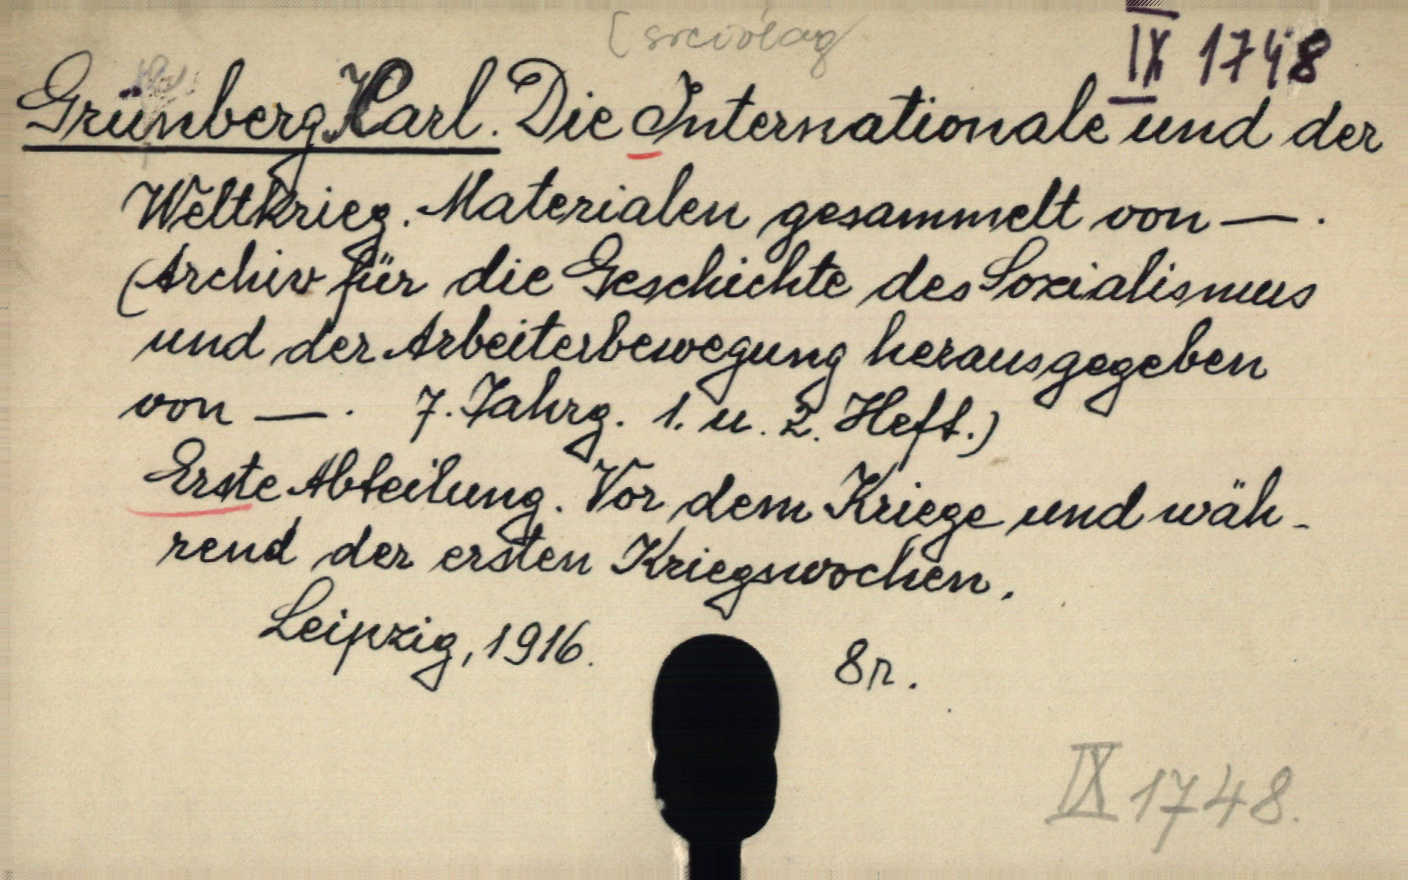 IX 1748
Grünberg Karl. Die Internationale und der
Weltkrieg. Materialen gesammelt von —.
(Archiv für die Geschichte des Sozialismus
und der Arbeiterbewegung herausgegeben
von —. 7. Jahrg. 1. u. 2. Heft.)
Erste Abteilung. Vor dem Kriege und wäh-
rend der ersten Kriegswochen.
Leipzig, 1916. 8r.
IX 1748.